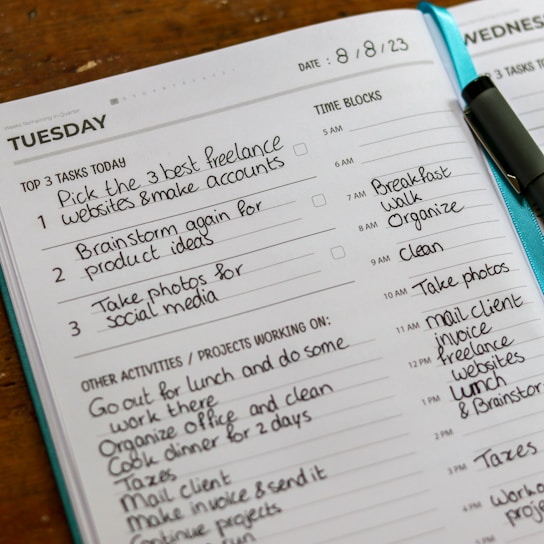 Weeks Remaining in Quarter
DATE : 8/8/23
TUESDAY
TOP 3 TASKS TODAY
1 Pick the 3 best freelance
websites & make accounts
2 Brainstorm again for
product ideas
3 Take photos for
social media
OTHER ACTIVITIES / PROJECTS WORKING ON:
Go out for lunch and do some
work there
Organize office and clean
Cook dinner for 2 days
Taxes
Mail client
Make invoice & send it
Continue projects
run
TIME BLOCKS
5 AM
6 AM
7 AM Breakfast
walk
8 AM Organize
9 AM clean
10 AM Take photos
11 AM mail client
invoice
12 PM freelance
websites
1 PM Lunch
& Brainstor
2 PM
3 PM Taxes
4 PM Worko
proje
5 PM
WEDNES
TOP 3 TASKS TO